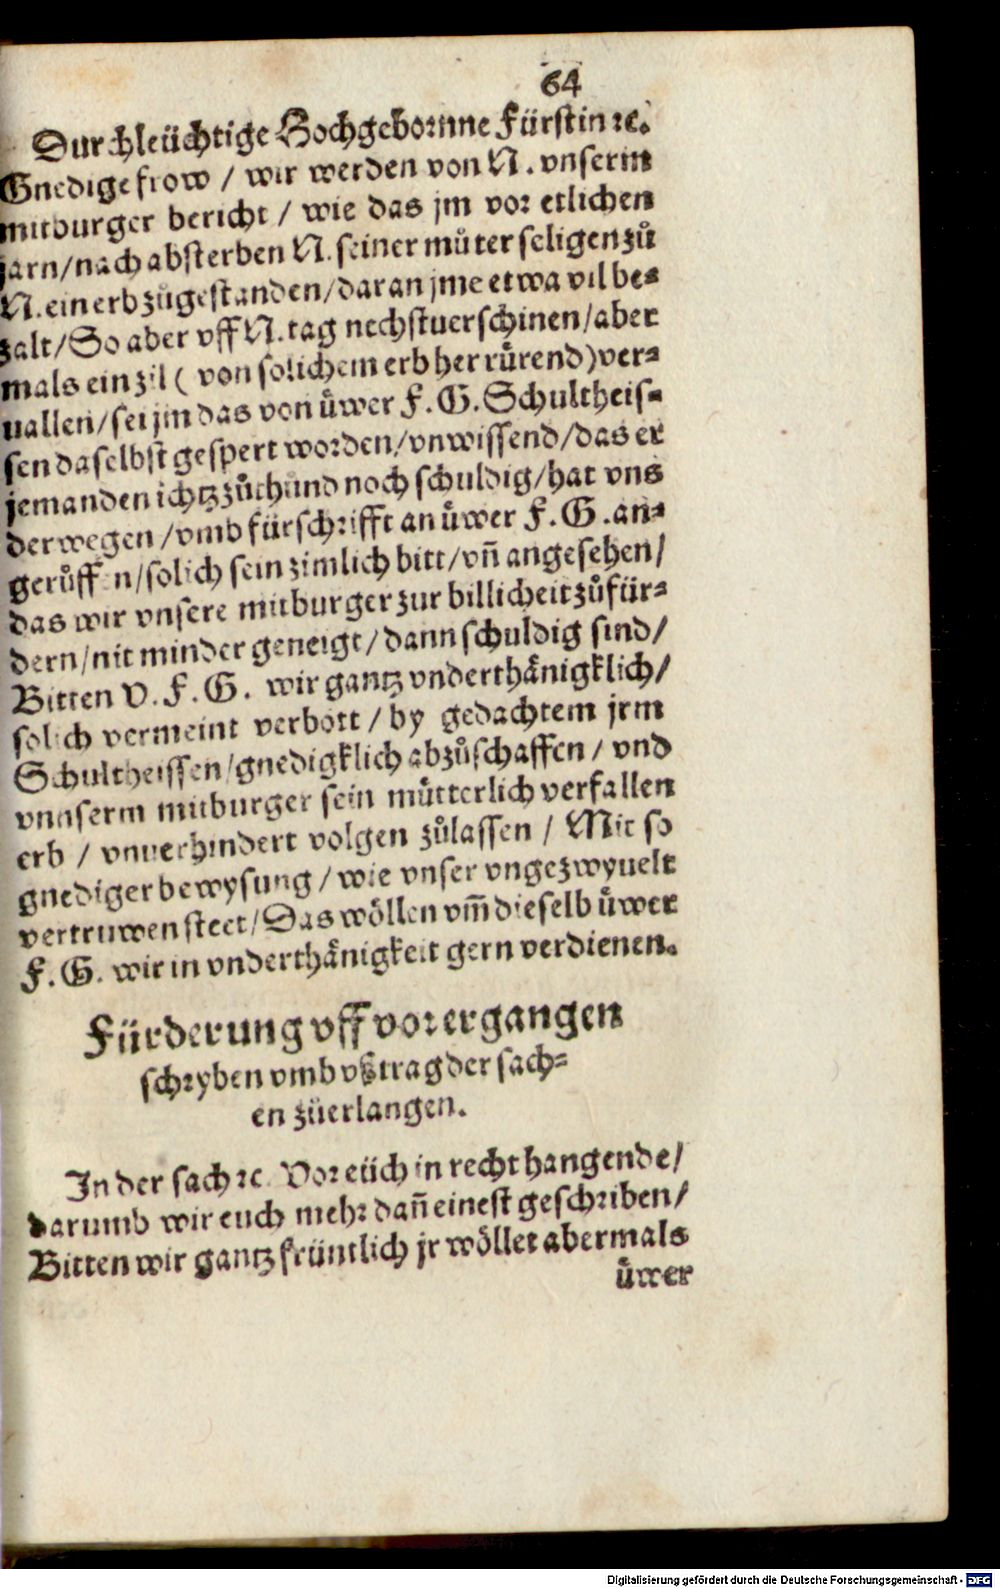 64
Durchleüchtige Hochgebornne Fürstin ꝛc.
Gnedige frow / wir werden von N. vnserm
mitburger bericht / wie das jm vor etlichen
jarn/nach absterben N. seiner můter seligen zů
N. ein erb zůgestanden/daran jme etwa vil be⸗
zalt/So aber vff N. tag nechstuerschinen/aber
mals ein zil ( von solichem erb her růrend) ver⸗
uallen/sei jm das von ůwer F. G. Schultheis⸗
sen daselbst gespert worden/vnwissend/das er
jemanden ichtz zůthůnd noch schuldig/hat vns
derwegen /vmb fürschrifft an ůwer F. G. an⸗
gerůffen/solich sein zimlich bitt/vñ angesehen/
das wir vnsere mitburger zur billicheit zůfür⸗
dern/nit minder geneigt/dann schuldig sind/
Bitten V. F. G. wir gantz vnderthånigklich/
solich vermeint verbott / by gedachtem jrm
Schultheissen/gnedigklich abzůschaffen / vnd
vnnserm mitburger sein můtterlich verfallen
erb / vnuerhindert volgen zůlassen / Mit so
gnediger bewysung / wie vnser vngezwyuelt
vertruwen steet/Das wöllen vm̃ dieselb ůwer
F. G. wir in vnderthånigkeit gern verdienen.
Fürderung vff vorergangen
schryben vmb vßtrag der sach⸗
en züerlangen.
In der sach ꝛc. Vor eüch in recht hangende/
darumb wir euch mehr dañ einest geschriben/
Bitten wir gantz früntlich jr wöllet abermals
ůwer
Digitalisierung gefördert durch die Deutsche Forschungsgemeinschaft - DFG